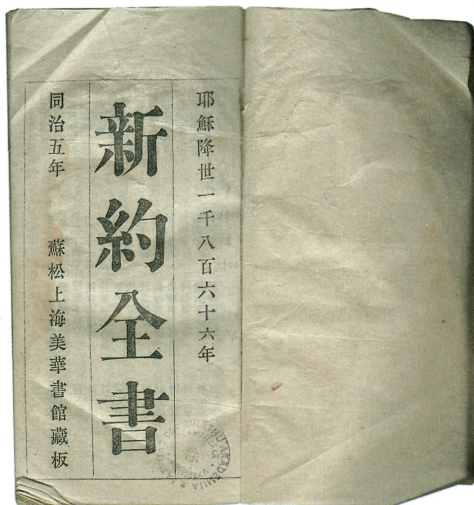 耶穌降世一千八百六十六年
新約全書
同治五年 蘇松上海美華書館藏板